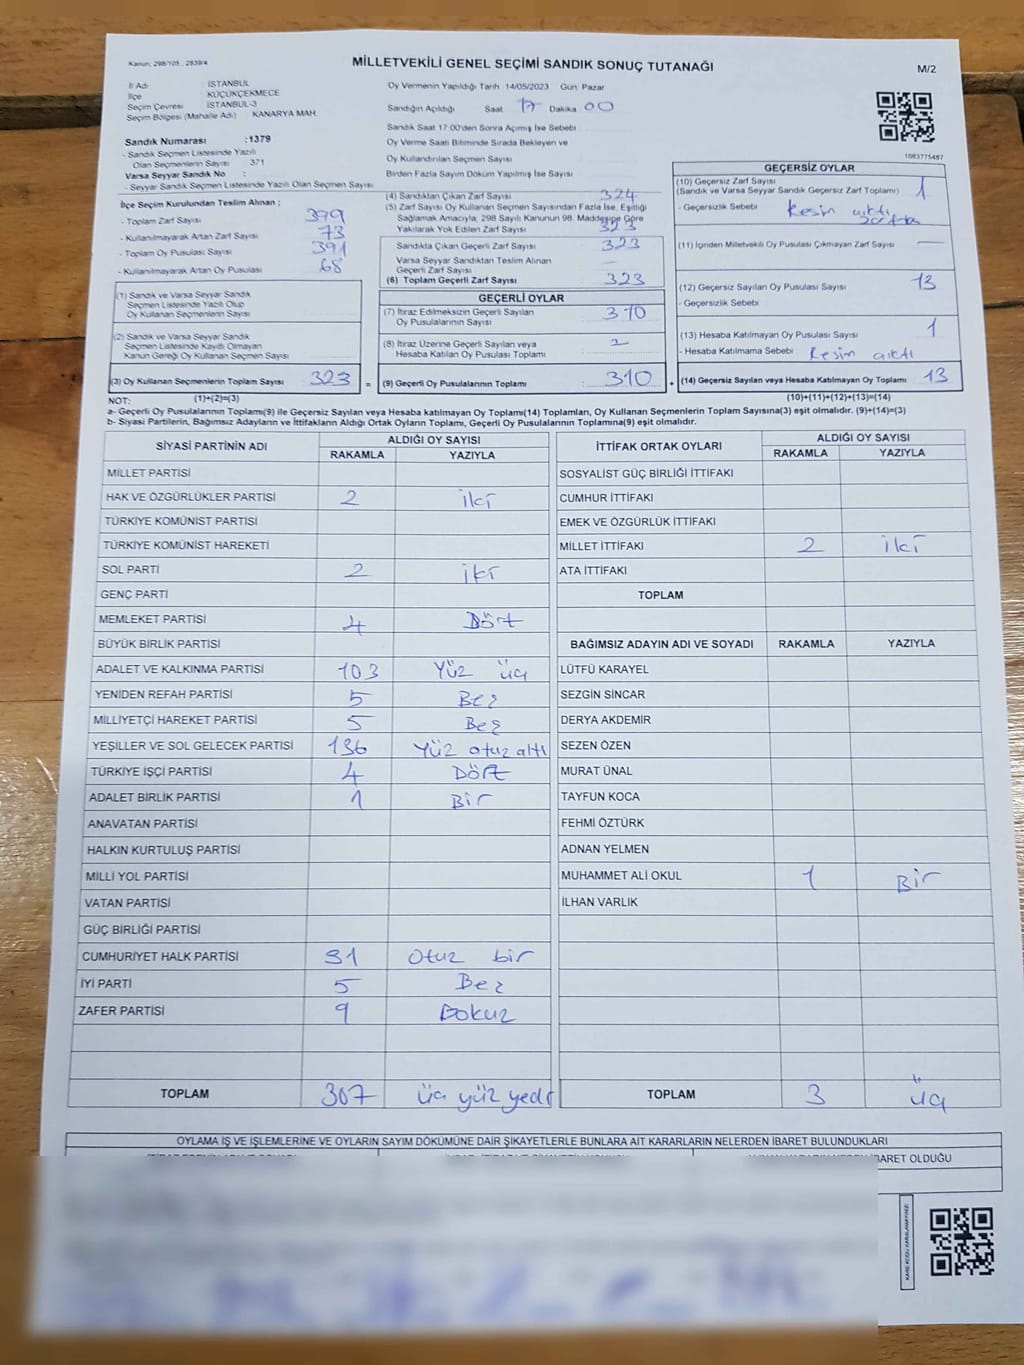 Kanun; 298/105 , 2839/4
MİLLETVEKİLİ GENEL SEÇİMİ SANDIK SONUÇ TUTANAĞI
M/2
İl Adı İSTANBUL
İlçe KÜÇÜKÇEKMECE
Seçim Çevresi İSTANBUL-3
Seçim Bölgesi (Mahalle Adı) KANARYA MAH.
Sandık Numarası :1379
- Sandık Seçmen Listesinde Yazılı
Olan Seçmenlerin Sayısı 371
Varsa Seyyar Sandık No :
- Seyyar Sandık Seçmen Listesinde Yazılı Olan Seçmen Sayısı
Oy Vermenin Yapıldığı Tarih 14/05/2023 Gün Pazar
Sandığın Açıldığı Saat 17 Dakika 00
Sandık Saat 17:00'den Sonra Açılmış İse Sebebi
Oy Verme Saati Bitiminde Sırada Bekleyen ve
Oy Kullandırılan Seçmen Sayısı
Birden Fazla Sayım Döküm Yapılmış İse Sayısı
1083775487
İlçe Seçim Kurulundan Teslim Alınan ;
- Toplam Zarf Sayısı 399
- Kullanılmayarak Artan Zarf Sayısı 73
- Toplam Oy Pusulası Sayısı 391
- Kullanılmayarak Artan Oy Pusulası 68
(1) Sandık ve Varsa Seyyar Sandık
Seçmen Listesinde Yazılı Olup
Oy Kullanan Seçmenlerin Sayısı
(2) Sandık ve Varsa Seyyar Sandık
Seçmen Listesinde Kayıtlı Olmayan
Kanun Gereği Oy Kullanan Seçmen Sayısı
(3) Oy Kullanan Seçmenlerin Toplam Sayısı 323
(4) Sandıktan Çıkan Zarf Sayısı 324
(5) Zarf Sayısı Oy Kullanan Seçmen Sayısından Fazla İse, Eşitliği
Sağlamak Amacıyla, 298 Sayılı Kanunun 98. Maddesine Göre
Yakılarak Yok Edilen Zarf Sayısı 323
Sandıkta Çıkan Geçerli Zarf Sayısı 323
Varsa Seyyar Sandıktan Teslim Alınan
Geçerli Zarf Sayısı —
(6) Toplam Geçerli Zarf Sayısı 323
GEÇERLİ OYLAR
(7) İtiraz Edilmeksizin Geçerli Sayılan
Oy Pusulalarının Sayısı 310
(8) İtiraz Üzerine Geçerli Sayılan veya
Hesaba Katılan Oy Pusulası Toplamı
= (9) Geçerli Oy Pusulalarının Toplamı : 310
GEÇERSİZ OYLAR
(10) Geçersiz Zarf Sayısı
(Sandık ve Varsa Seyyar Sandık Geçersiz Zarf Toplamı) 1
- Geçersizlik Sebebi Resim çıktı
(11) İçinden Milletvekili Oy Pusulası Çıkmayan Zarf Sayısı —
(12) Geçersiz Sayılan Oy Pusulası Sayısı 13
- Geçersizlik Sebebi
(13) Hesaba Katılmayan Oy Pusulası Sayısı 1
- Hesaba Katılmama Sebebi Resim çıktı
+ (14) Geçersiz Sayılan veya Hesaba Katılmayan Oy Toplamı 13
NOT: (1)+(2)=(3) (10)+(11)+(12)+(13)=(14)
a- Geçerli Oy Pusulalarının Toplamı(9) ile Geçersiz Sayılan veya Hesaba katılmayan Oy Toplamı(14) Toplamları, Oy Kullanan Seçmenlerin Toplam Sayısına(3) eşit olmalıdır. (9)+(14)=(3)
b- Siyasi Partilerin, Bağımsız Adayların ve İttifakların Aldığı Ortak Oyların Toplamı, Geçerli Oy Pusulalarının Toplamına(9) eşit olmalıdır.
SİYASİ PARTİNİN ADI ALDIĞI OY SAYISI
RAKAMLA YAZIYLA
MİLLET PARTİSİ
HAK VE ÖZGÜRLÜKLER PARTİSİ 2 iki
TÜRKİYE KOMÜNİST PARTİSİ
TÜRKİYE KOMÜNİST HAREKETİ
SOL PARTİ 2 iki
GENÇ PARTİ
MEMLEKET PARTİSİ 4 Dört
BÜYÜK BİRLİK PARTİSİ
ADALET VE KALKINMA PARTİSİ 103 Yüz üç
YENİDEN REFAH PARTİSİ 5 Beş
MİLLİYETÇİ HAREKET PARTİSİ 5 Beş
YEŞİLLER VE SOL GELECEK PARTİSİ 136 Yüz otuz altı
TÜRKİYE İŞÇİ PARTİSİ 4 Dört
ADALET BİRLİK PARTİSİ 1 Bir
ANAVATAN PARTİSİ
HALKIN KURTULUŞ PARTİSİ
MİLLİ YOL PARTİSİ
VATAN PARTİSİ
GÜÇ BİRLİĞİ PARTİSİ
CUMHURİYET HALK PARTİSİ 31 otuz bir
İYİ PARTİ 5 Beş
ZAFER PARTİSİ 9 Dokuz
TOPLAM 307 üç yüz yedi
İTTİFAK ORTAK OYLARI ALDIĞI OY SAYISI
RAKAMLA YAZIYLA
SOSYALİST GÜÇ BİRLİĞİ İTTİFAKI
CUMHUR İTTİFAKI
EMEK VE ÖZGÜRLÜK İTTİFAKI
MİLLET İTTİFAKI 2 iki
ATA İTTİFAKI
TOPLAM
BAĞIMSIZ ADAYIN ADI VE SOYADI RAKAMLA YAZIYLA
LÜTFÜ KARAYEL
SEZGİN SİNCAR
DERYA AKDEMİR
SEZEN ÖZEN
MURAT ÜNAL
TAYFUN KOCA
FEHMİ ÖZTÜRK
ADNAN YELMEN
MUHAMMET ALİ OKUL 1 Bir
İLHAN VARLIK
TOPLAM 3 üç
OYLAMA İŞ VE İŞLEMLERİNE VE OYLARIN SAYIM DÖKÜMÜNE DAİR ŞİKAYETLERLE BUNLARA AİT KARARLARIN NELERDEN İBARET BULUNDUKLARI
İBARET OLDUĞU
KARE KODU KARALAMAYINIZ!